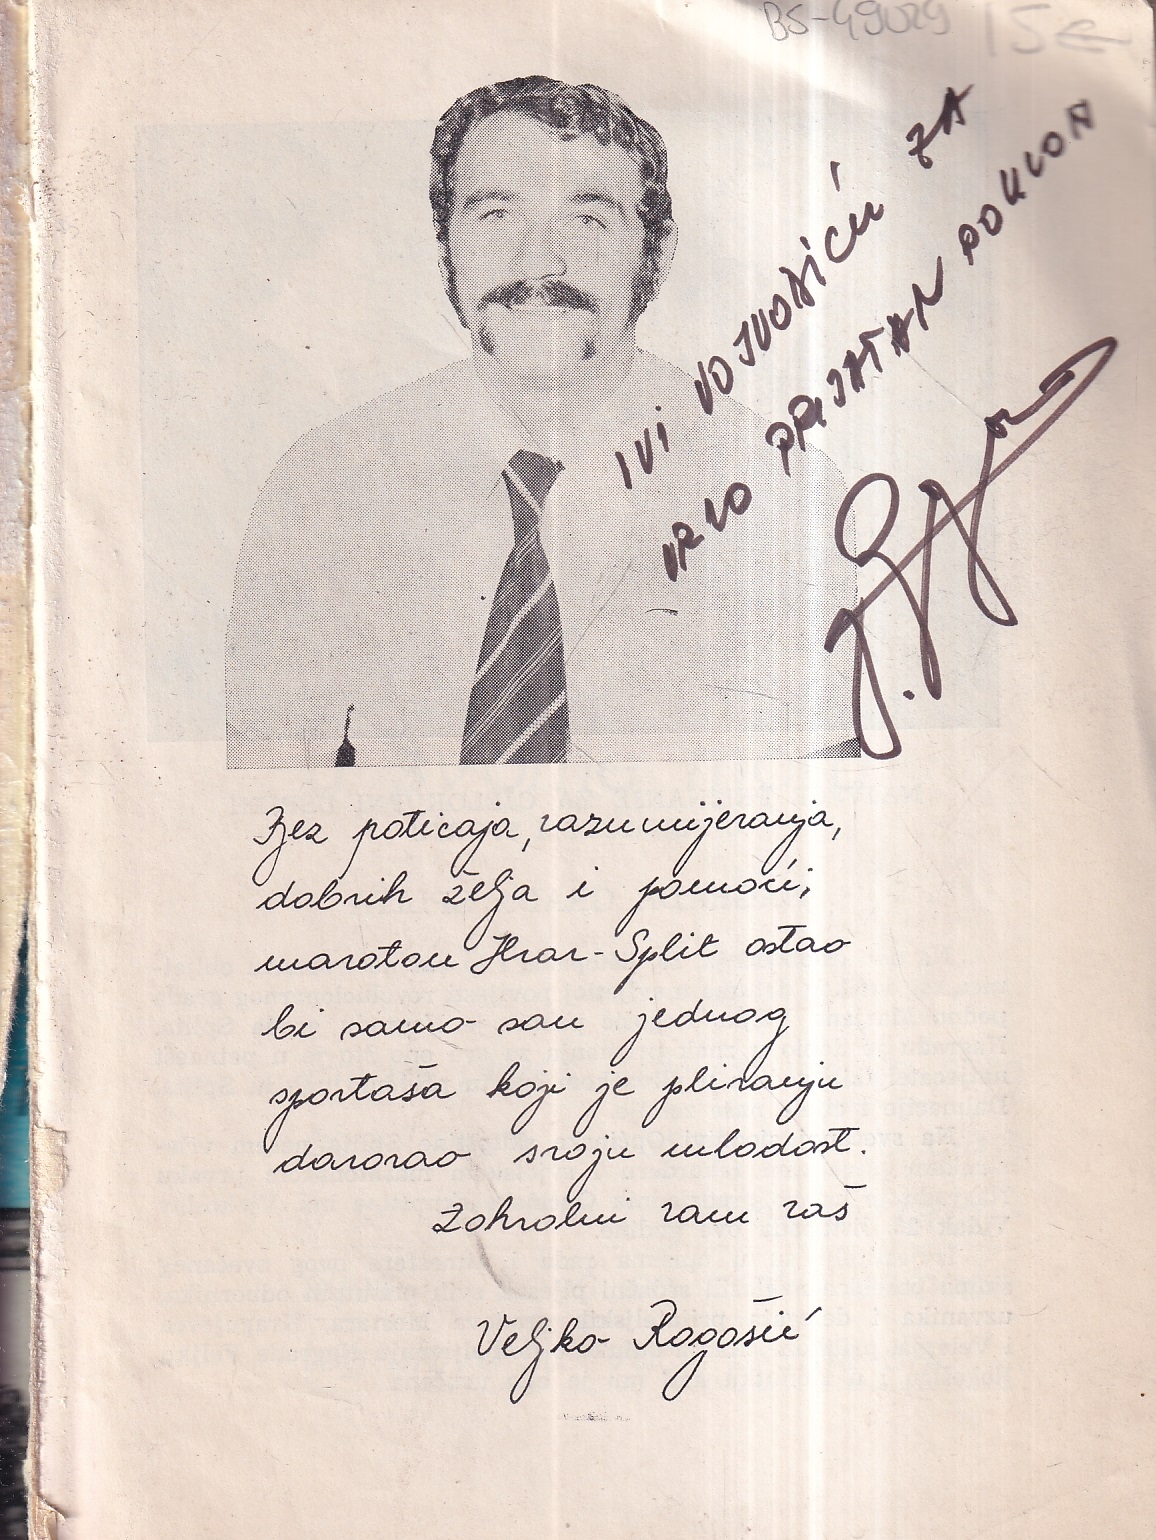 BS-49029 15€
IVI VOJVODIĆU ZA
VRLO PRIJATAN POKLON
Bez poticaja, razumijevanja,
dobrih želja i pomoći,
maraton Hvar-Split ostao
bi samo san jednog
sportaša koji je plivanju
darovao svoju mladost.
Zahvalni vam vaš
Veljko Rogošić